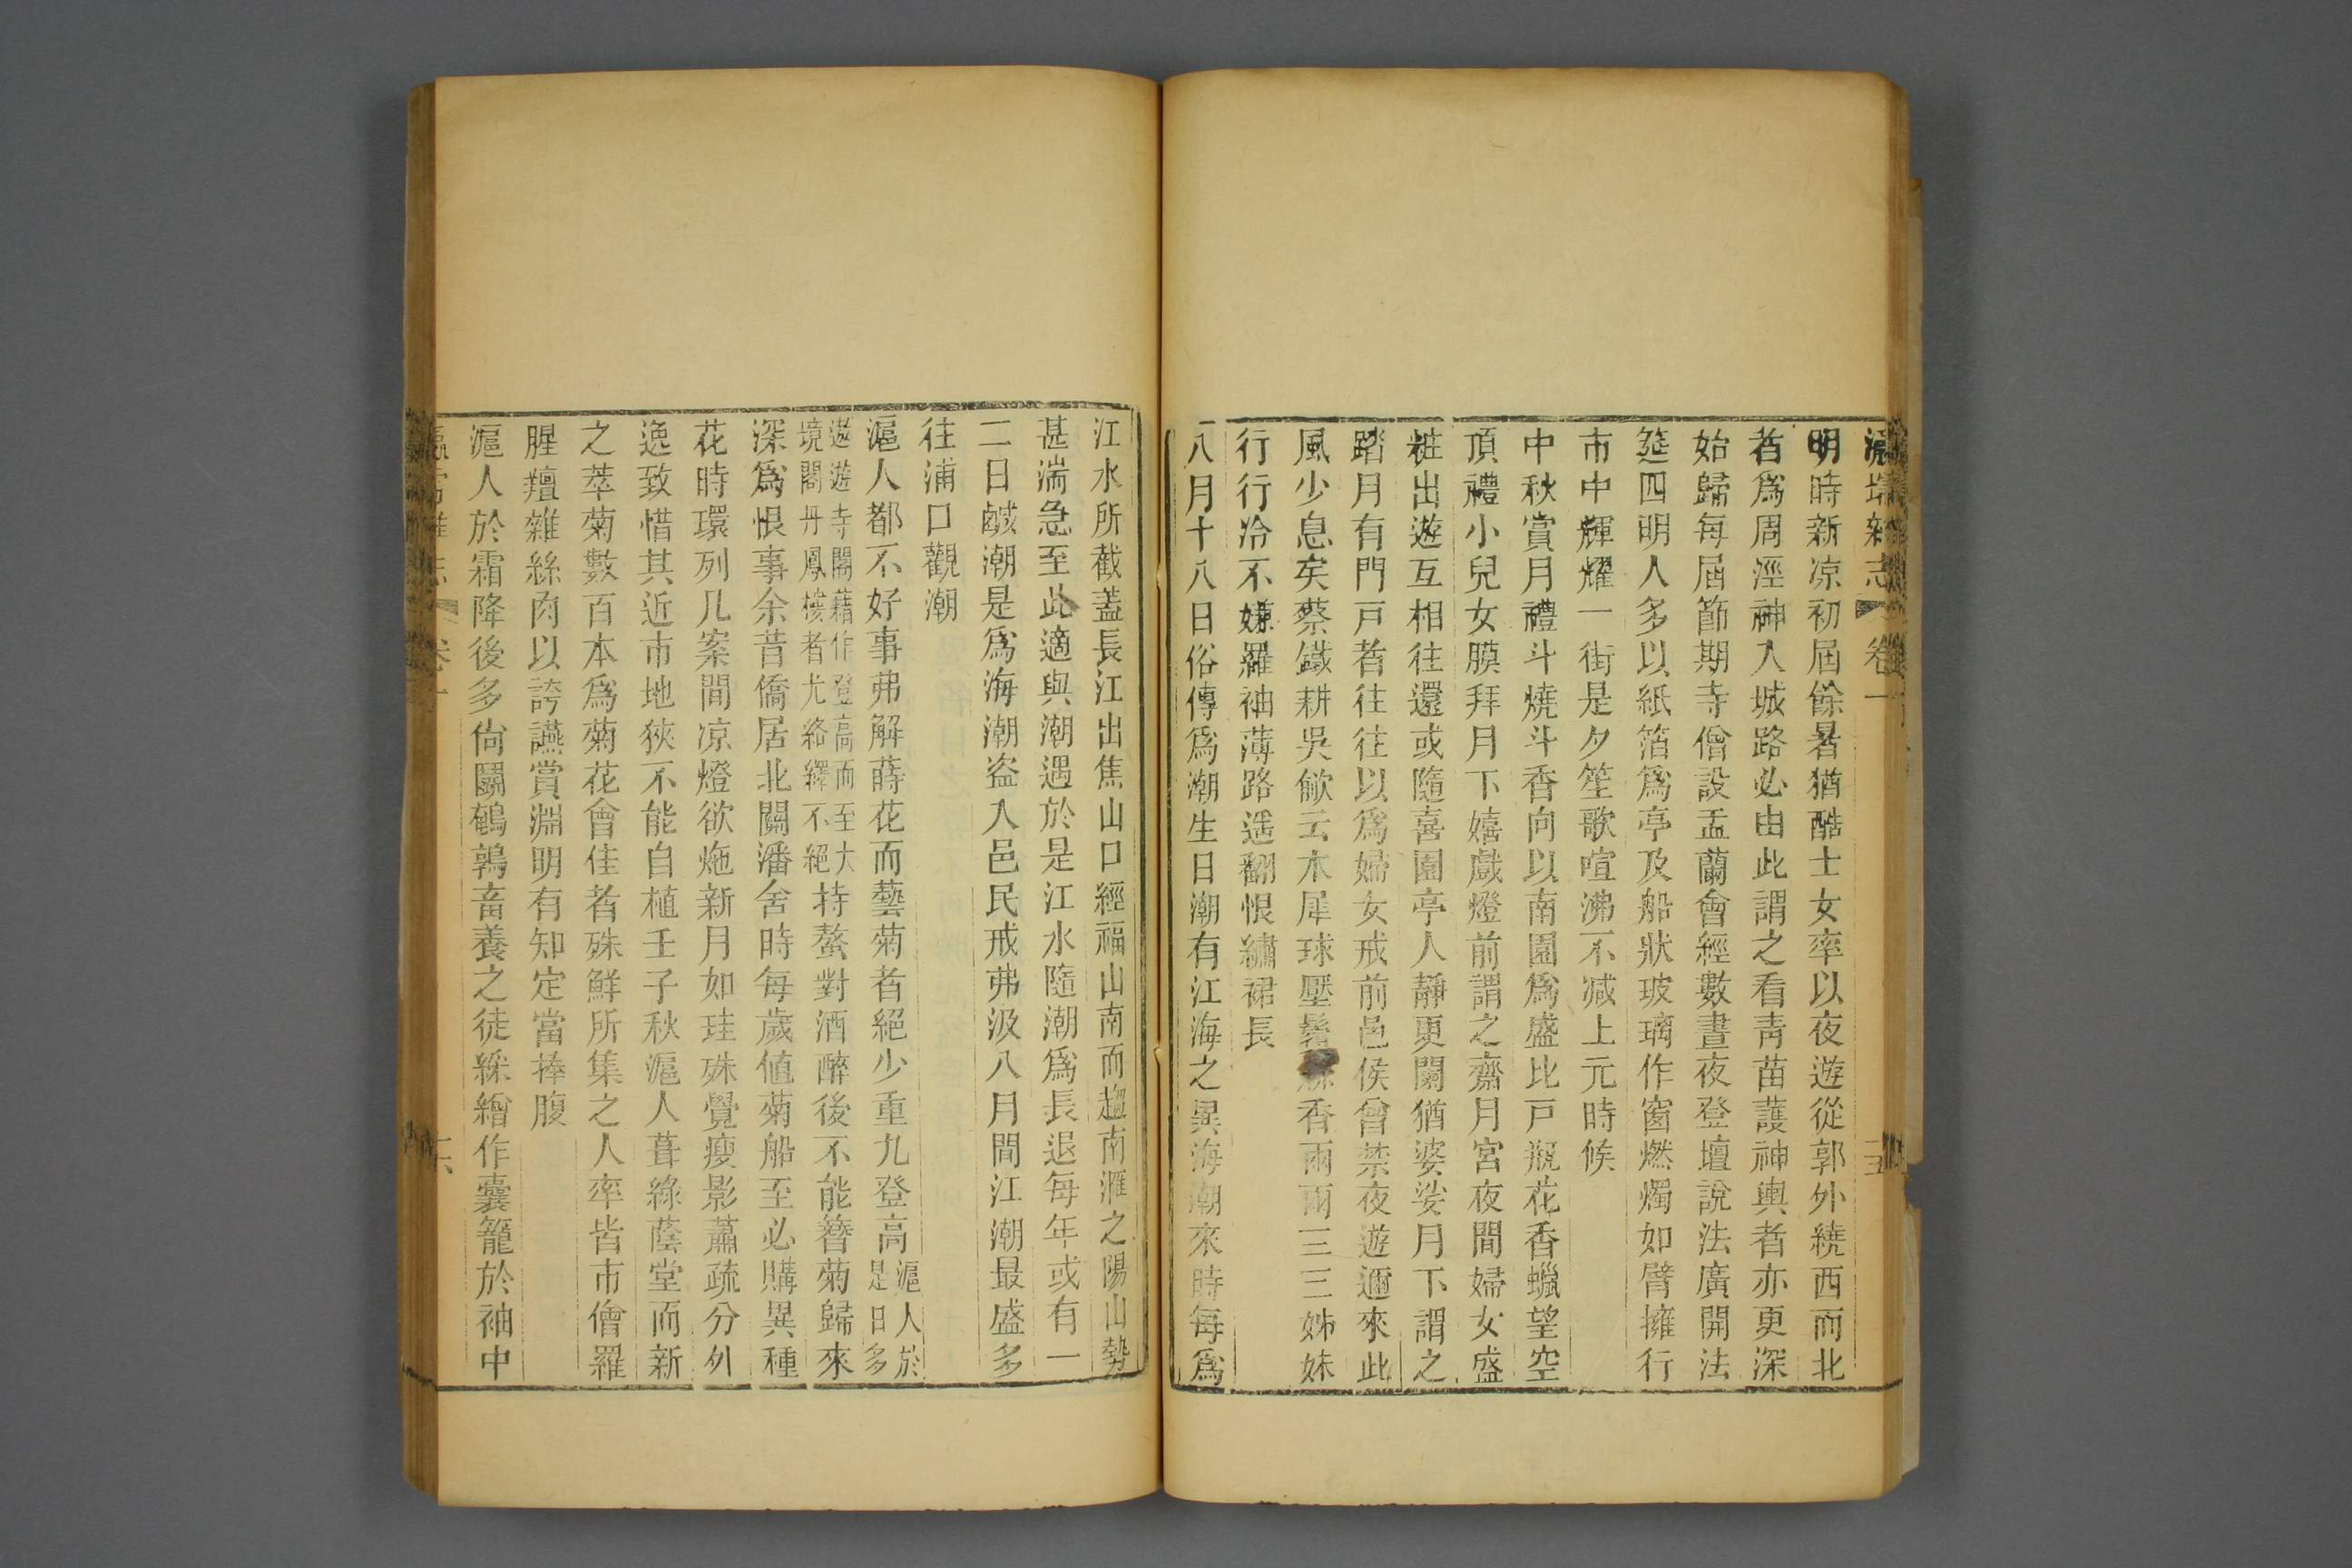 瀛壖雜志 卷一
明時新凉初屆餘暑猶酷士女率以夜遊從郭外繞西而北
者爲周涇神入城路必由此謂之看靑苗護神輿者亦更深
始歸每屆節期寺僧設盂蘭會經數晝夜登壇說法廣開法
筵四明人多以紙箔爲亭及船狀玻璃作窗燃燭如臂擁行
市中輝耀一街是夕笙歌喧沸不减上元時候
中秋賞月禮斗燒斗香向以南園爲盛比戸瓶花香蠟望空
頂禮小兒女膜拜月下嬉戲燈前謂之齋月宮夜間婦女盛
粧出遊互相往還或隨喜園亭人靜更闌猶婆娑月下謂之
踏月有門戸者往往以爲婦女戒前邑侯曾禁夜遊邇來此
風少息矣蔡鐵耕吳歈云木犀球壓鬢香兩兩三三姊妹
行行冷不嫌羅袖薄路遥翻恨繡裙長
八月十八日俗傳爲潮生日潮有江海之異海潮來時每爲
江水所截蓋長江出焦山口經福山南而趨南滙之陽山勢
甚湍急至此適與潮遇於是江水隨潮爲長退每年或有一
二日鹹潮是爲海潮盗入邑民戒弗汲八月間江潮最盛多
往浦口觀潮
滬人都不好事弗解蒔花而藝菊者絕少重九登高滬人於是日多
遨遊寺閣藉作登高而至大境閣丹鳳樓者尤絡繹不絕持螯對酒醉後不能簪菊歸來
深爲恨事余昔僑居北關潘舍時每歲値菊船至必購異種
花時環列几案間凉燈欲灺新月如珪殊覺瘦影蕭疏分外
逸致惜其近市地狹不能自植壬子秋滬人葺綠蔭堂而新
之萃菊數百本爲菊花會佳者殊鮮所集之人率皆市儈羅
腥羶雜絲肉以誇讌賞淵明有知定當捧腹
滬人於霜降後多尙鬭鵪鶉畜養之徒綵繒作囊籠於袖中